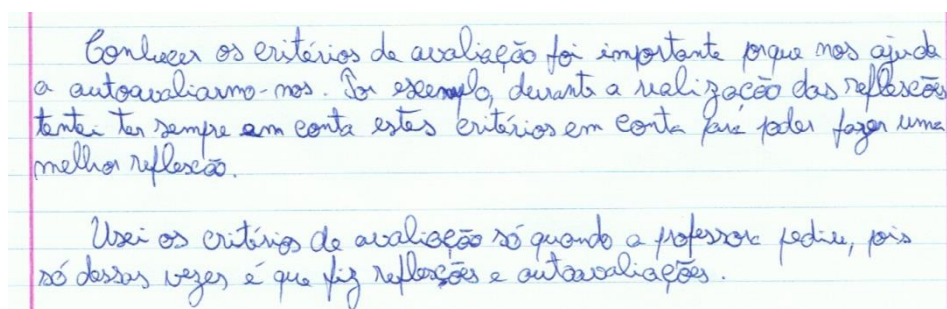 Conhecer os critérios de avaliação foi importante porque nos ajuda
a autoavaliarmo-nos. Por exemplo, durante a realização das reflexões
tentei ter sempre em conta estes critérios em conta para poder fazer uma
melhor reflexão.
Usei os critérios de avaliação só quando a professora pediu, pois
só dessas vezes é que fiz reflexões e autoavaliações.